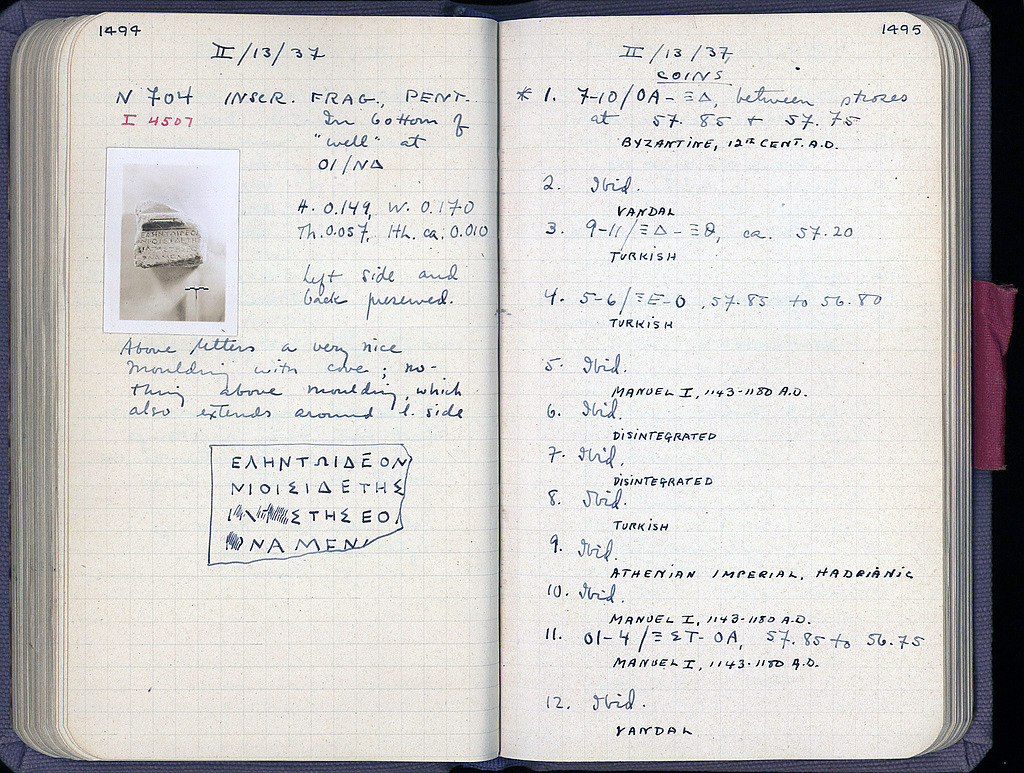 1494
II/13/37
N 704 INSCR. FRAG., PENT.
I 4507
In bottom of
"well" at
01/ΝΔ
H. 0.149, W. 0.170
Th. 0.057, Lth. ca. 0.010
Left side and
back preserved.
Above letters a very nice
moulding with cove; no-
thing above moulding, which
also extends around l. side
ΕΛΗΝΤΩΙΔΕΟΝ
ΝΙΟΙΣΙΔΕΤΗΣ
ΣΤΗΣΕΟ
ΟΝΑΜΕΝ
1495
II/13/37
COINS
* 1. 7-10/ΟΑ-ΞΔ, between stroses
at 57.85 + 57.75
BYZANTINE, 12TH CENT. A.D.
2. Ibid.
VANDAL
3. 9-11/ΞΔ-ΞΘ, ca. 57.20
TURKISH
4. 5-6/ΞΕ-Ο, 57.85 to 56.80
TURKISH
5. Ibid.
MANUEL I, 1143-1180 A.D.
6. Ibid.
DISINTEGRATED
7. Ibid.
DISINTEGRATED
8. Ibid.
TURKISH
9. Ibid.
ATHENIAN IMPERIAL, HADRIANIC
10. Ibid.
MANUEL I, 1143-1180 A.D.
11. 01-4/ΞΣΤ-ΟΑ, 57.85 to 56.75
MANUEL I, 1143-1180 A.D.
12. Ibid.
VANDAL